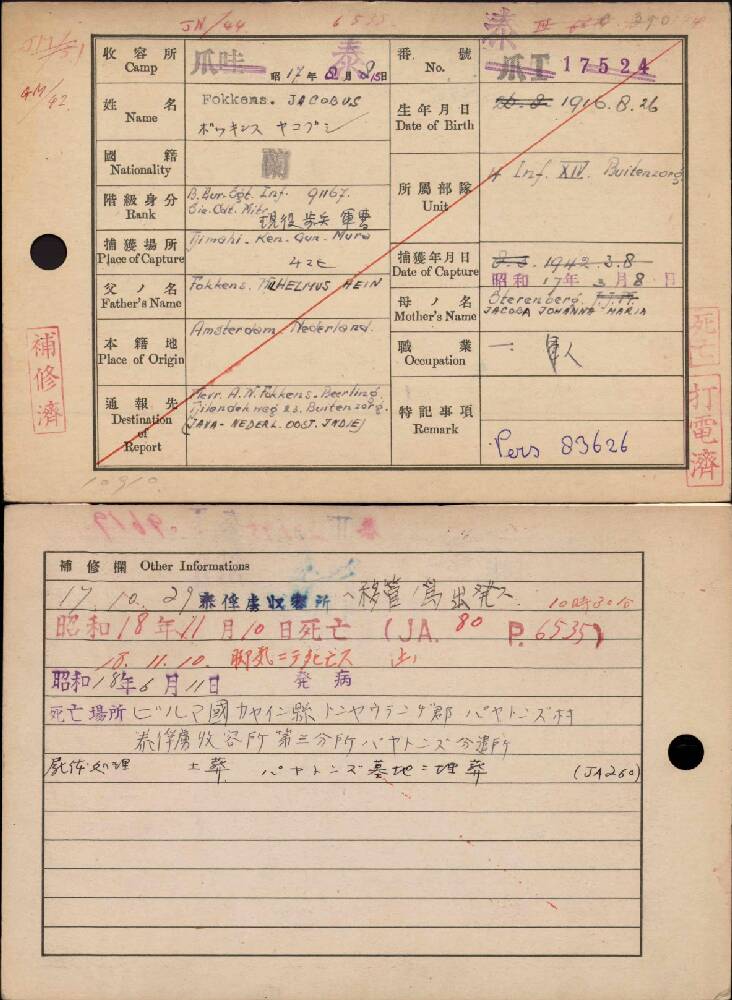 JN/44 6535
泰
收容所 Camp 爪哇 泰 昭17年8月15日
番號 No. 爪I 17524
姓名 Name Fokkens. JACOBUS
ホツキンス ヤコブシ
生年月日 Date of Birth 1916.8.26
國籍 Nationality 蘭
階級身分 Rank B. Bur. Sgt. Inf. 91167.
現役歩兵軍曹
所屬部隊 Unit Inf. XIV. Buitenzorg.
捕獲場所 Place of Capture Tjimahi - Ken. Gun. Mura
捕獲年月日 Date of Capture 1942.3.8.
昭和17年3月8日
父ノ名 Father's Name Fokkens. WILHELMUS HEIN
母ノ名 Mother's Name Sterenberg. J.J.M.
JACOBA JOHANNA MARIA
本籍地 Place of Origin Amsterdam, Nederland.
職業 Occupation 軍人
通報先 Destination of Report Mevr. A.N. Fokkens-Beerling.
Tjilendek weg 23. Buitenzorg.
(JAVA - NEDERL. OOST. INDIE)
特記事項 Remark
Pers 83626
補修濟
死亡
打電濟
10910.
補修欄 Other Informations
17. 10. 29 泰俘虜収容所ヘ移管ノ爲出発ス 10時30分
昭和18年11月10日死亡 (JA. 80 P. 6535)
18. 11. 10. 脚気ニテ死亡ス
昭和18年6月11日 発病
死亡場所 ビルマ國カヤイン縣 パヤトンズ村
泰俘虜收容所第三分所パヤトンズ分遣所
屍体処理 土葬 パヤトンズ墓地ニ埋葬 (JA260)